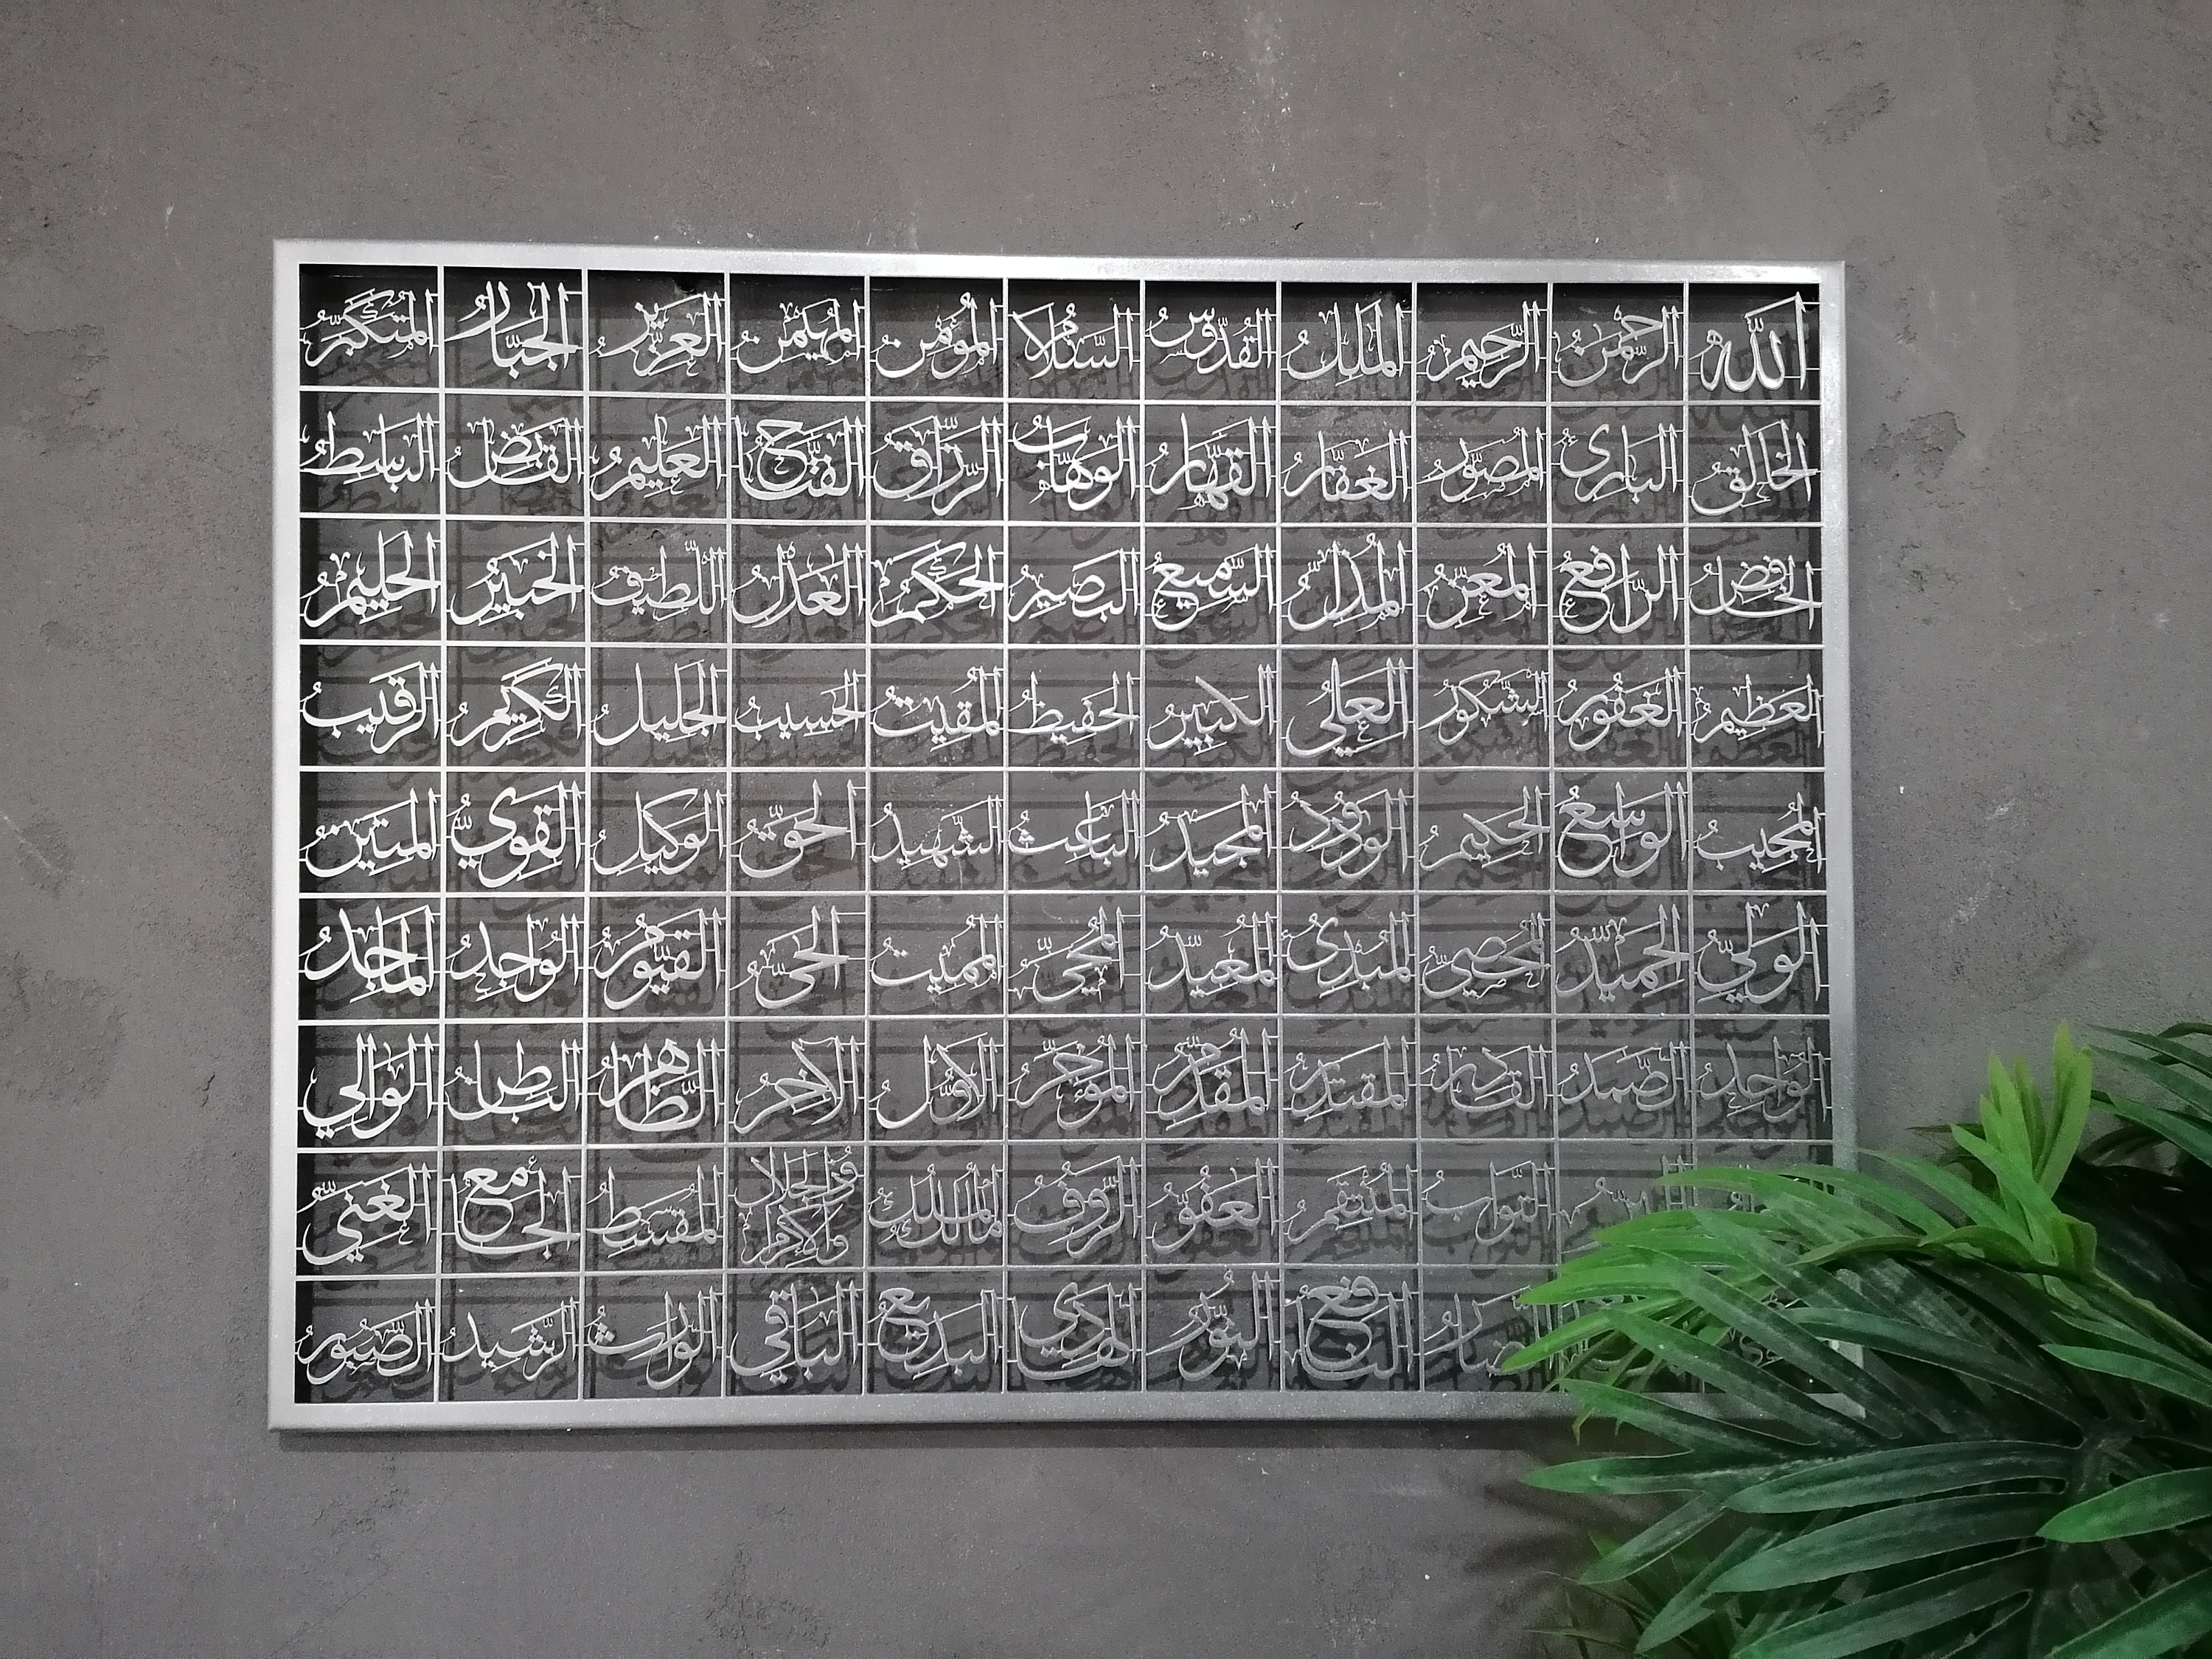 الله الرحمن الرحيم الملك القدوس السلام المؤمن المهيمن العزيز الجبار المتكبر
الخالق البارئ المصور الغفار القهار الوهاب الرزاق الفتاح العليم القابض الباسط
الخافض الرافع المعز المذل السميع البصير الحكم العدل اللطيف الخبير الحليم
العظيم الغفور الشكور العلي الكبير الحفيظ المقيت الحسيب الجليل الكريم الرقيب
المجيب الواسع الحكيم الودود المجيد الباعث الشهيد الحق الوكيل القوي المتين
الولي الحميد المحصي المبدئ المعيد المحيي المميت الحي القيوم الواجد الماجد
الواحد الصمد القادر المقتدر المقدم المؤخر الأول الآخر الظاهر الباطن الوالي
التواب المنتقم العفو الرؤف مالك الملك ذو الجلال والإكرام المقسط الجامع الغني
النافع النور الهادي البديع الباقي الوارث الرشيد الصبور